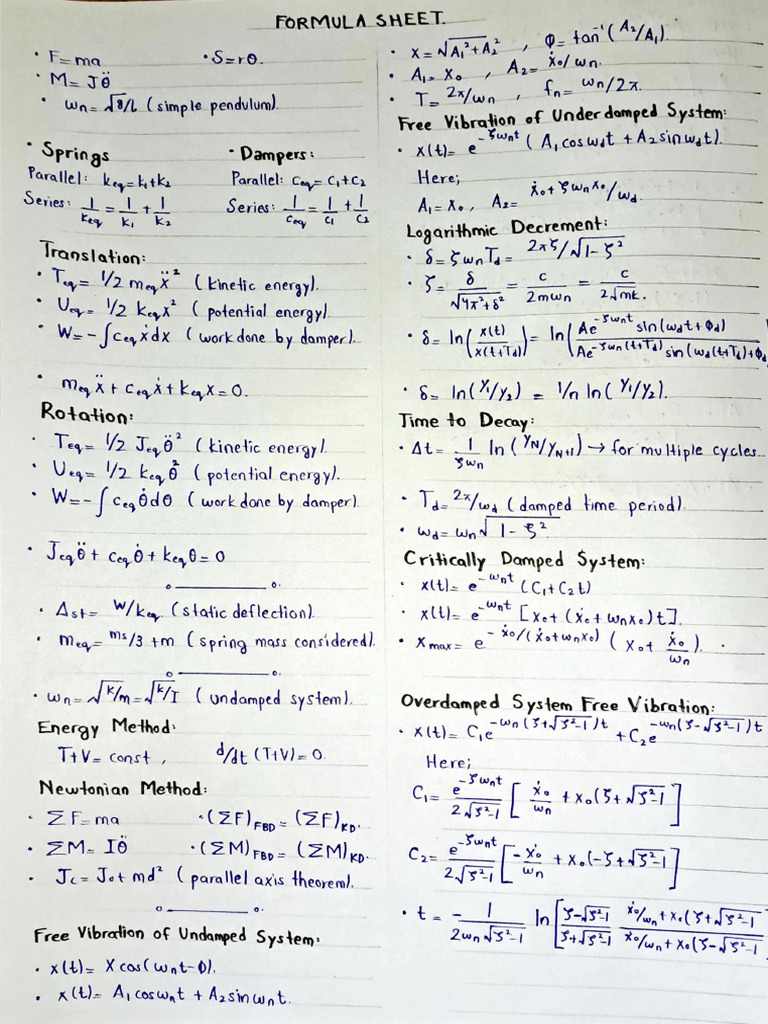 FORMULA SHEET.
• F=ma • S=rθ.
• M= Jθ̈
• ωn= √g/L (simple pendulum).
• Springs • Dampers:
Parallel: keq=k1+k2 Parallel: Ceq=C1+C2
Series: 1/keq = 1/k1 + 1/k2 Series: 1/Ceq = 1/C1 + 1/C2
Translation:
• Teq= 1/2 meq ẍ² (kinetic energy).
• Ueq= 1/2 keq x² (potential energy).
• W= -∫ceq ẋdx (work done by damper).
• meq ẍ + ceq ẋ + keq x = 0.
Rotation:
• Teq= 1/2 Jeq θ̈² (kinetic energy).
• Ueq= 1/2 keq θ̈² (potential energy).
• W= -∫ceq θ̇dθ (work done by damper).
• Jeq θ̈ + ceq θ̇ + keq θ = 0
• Δst= W/keq (static deflection).
• meq= ms/3 + m (spring mass considered).
• ωn= √k/m = √k/I (undamped system).
Energy Method:
T+V= const , d/dt (T+V)= 0.
Newtonian Method:
• ΣF=ma • (ΣF)FBD= (ΣF)KD.
• ΣM= Iθ̈ • (ΣM)FBD= (ΣM)KD.
• Jc= J0+ md² (parallel axis theorem).
Free Vibration of Undamped System:
• x(t)= X cos(ωnt-Φ).
• x(t)= A1cosωnt + A2sinωnt.
• X= √A1²+A2² , Φ= tan⁻¹(A2/A1).
• A1= x0 , A2= ẋ0/ωn.
• T= 2π/ωn , fn= ωn/2π.
Free Vibration of Underdamped System:
• x(t)= e^-ζωnt (A1cosωdt + A2sinωdt).
Here;
A1= x0, A2= ẋ0+ζωnx0/ωd.
Logarithmic Decrement:
• δ= ζωnTd= 2πζ/√1-ζ²
• ζ= δ/√4π²+δ² = c/2mωn = c/2√mk.
• δ= ln(x(t)/x(t+Td)) = ln(Ae^-ζωnt sin(ωdt+Φd)/Ae^-ζωn(t+Td) sin(ωd(t+Td)+Φd
• δ= ln(Y1/Y2) = 1/n ln(Y1/Y2).
Time to Decay:
• Δt= 1/ζωn ln(YN/YN+1) → for multiple cycles..
• Td= 2π/ωd (damped time period).
• ωd= ωn√1-ζ².
Critically Damped System:
• x(t)= e^-ωnt (C1+C2t)
• x(t)= e^-ωnt [x0+(ẋ0+ωnx0)t].
• xmax= e^-ẋ0/(ẋ0+ωnx0) (x0+ ẋ0/ωn).
Overdamped System Free Vibration:
• x(t)= C1e^-ωn(ζ+√ζ²-1)t + C2e^-ωn(ζ-√ζ²-1)t
Here;
C1= e^-ζωnt/2√ζ²-1 [ẋ0/ωn + x0(ζ+√ζ²-1]
C2= e^-ζωnt/2√ζ²-1 [-ẋ0/ωn + x0(-ζ+√ζ²-1]
• t= -1/2ωn√ζ²-1 ln[ζ-√ζ²-1/ζ+√ζ²-1 ẋ0/ωn+x0(ζ+√ζ²-1/ẋ0/ωn+x0(ζ-√ζ²-1